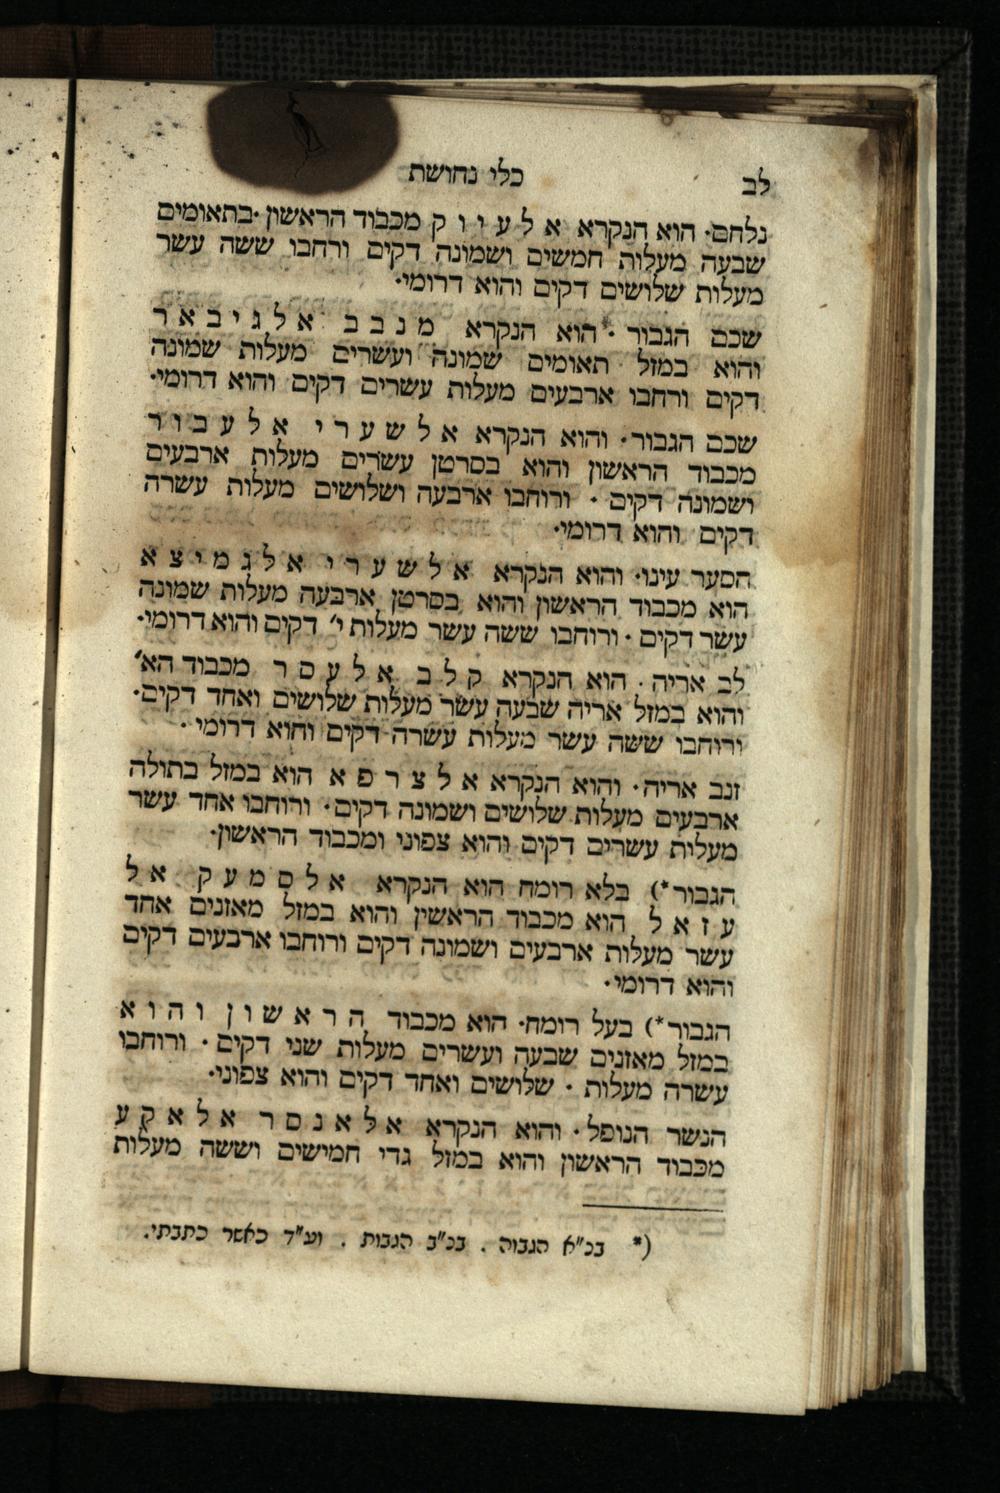 לב
כלי נחושת
נלחם· הוא הנקרא א ל ע י ו ק מכבוד הראשון ·בתאומים
שבעה מעלות חמשים ושמונה דקים ורחבו ששה עשר
מעלות שלושים דקים והוא דרומי·
שכם הגבור · הוא הנקרא מ נ כ ב א ל ג י ב א ר
והוא במזל תאומים שמונה ועשרים מעלות שמונה
דקים ורחבו ארבעים מעלות עשרים דקים והוא דרומי·
שכם הגבור· והוא הנקרא א ל ש ע ר י א ל ע ב ו ר
מכבוד הראשון והוא בסרטן עשרים מעלות ארבעים
ושמונה דקים · ורוחבו ארבעה ושלושים מעלות עשרה
דקים והוא דרומי·
הסער עינו· והוא הנקרא א ל ש ע ר י א ל ג מ י צ א
הוא מכבוד הראשון והוא בסרטן ארבעה מעלות שמונה
עשר דקים · ורוחבו ששה עשר מעלות י׳ דקים והוא דרומי·
לב אריה · הוא הנקרא ק ל ב א ל ע ס ר מכבוד הא׳
והוא במזל אריה שבעה עשר מעלות שלושים ואחד דקים·
ורוחבו ששה עשר מעלות עשרה דקים והוא דרומי ·
זנב אריה· והוא הנקרא א ל צ ר פ א הוא במזל בתולה
ארבעים מעלות שלושים ושמונה דקים· ורוחבו אחד עשר
מעלות עשרים דקים והוא צפוני ומכבוד הראשון·
הגבור *) בלא רומח הוא הנקרא א ל ס מ ע ק א ל
ע ז א ל הוא מכבוד הראשון והוא במזל מאזנים אחד
עשר מעלות ארבעים ושמונה דקים ורוחבו ארבעים דקים
והוא דרומי·
הגבור *) בעל רומח· הוא מכבוד ה ר א ש ו ן ו ה ו א
במזל מאזנים שבעה ועשרים מעלות שני דקים · ורוחבו
עשרה מעלות · שלושים ואחד דקים והוא צפוני·
הנשר הנופל· והוא הנקרא א ל א נ ס ר א ל א ק ע
מכבוד הראשון והוא במזל גדי חמישים וששה מעלות
*) בכ״א הגבוה . בכ״ב הגבות . וע״ד כאשר כתבתי.